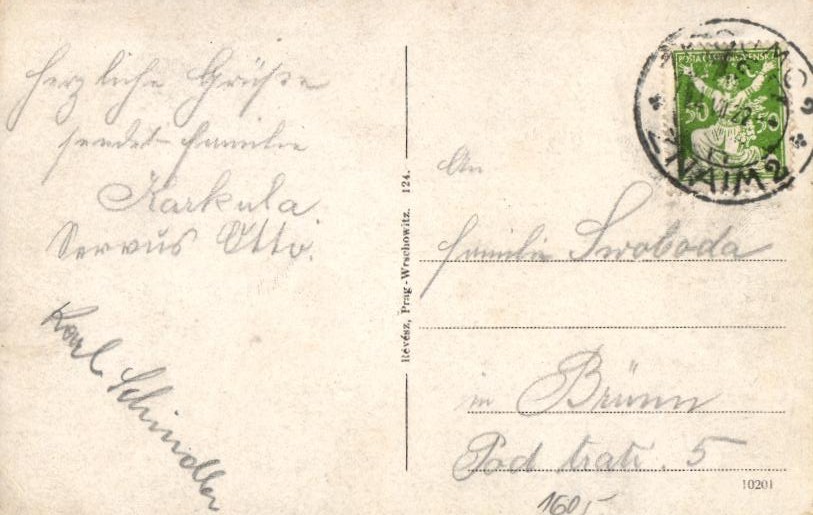 Herzliche Grüße
sendet Familie
Karkula
Servus Otto.
Karl Schindler
Révész, Prag-Wrschowitz. 124.
POSTA ČESKOSLOVENSKÁ
50 50
ZNAIM 2
An
Familie Swoboda
in Brünn
Pod trati. 5
10201
160,-